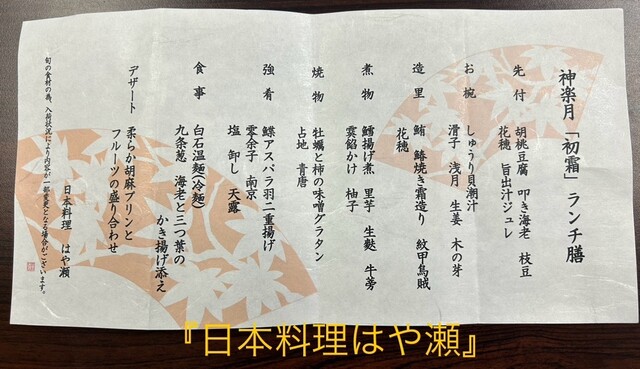 神楽月「初霜」ランチ膳
先付 胡桃豆腐 叩き海老 枝豆
花穂 旨出汁ジュレ
お椀 しゅうり貝潮汁
滑子 浅月 生姜 木の芽
造里 鮪 鰆焼き霜造り 紋甲烏賊
花穂
煮物 鱈揚げ煮 里芋 生麩 牛蒡
霙餡かけ 柚子
焼物 牡蠣と柿の味噌グラタン
占地 青唐
強肴 鰈アスパラ羽二重揚げ
零余子 南京
塩 卸し 天露
食事 白石温麺(冷麺)
九条葱 海老と三つ葉の
かき揚げ添え
デザート 柔らか胡麻プリンと
フルーツの盛り合わせ
日本料理 はや瀬
旬の食材の為、入荷状況により内容が一部変更となる場合がございます。
『日本料理はや瀬』